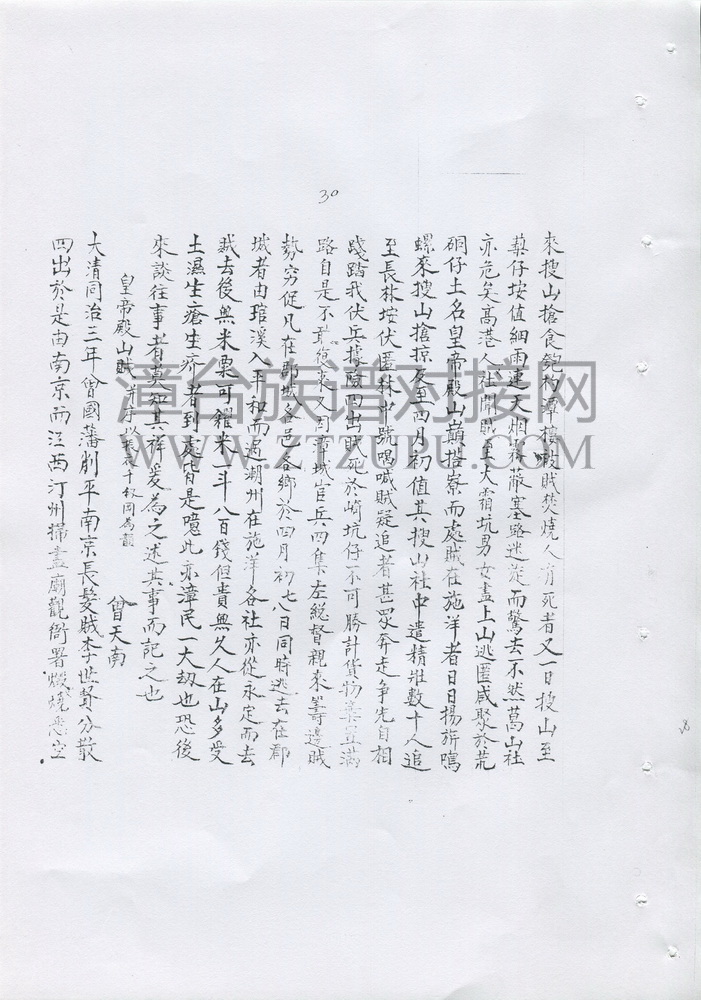 30
來搜山搶食鮑杓潭樓被賊焚燒人有死者又一日搜山至
葉仔垵值細雨連天烟霧蔽塞路迷從而驚去不然萬山社
亦危矣高港人社開賊至大霜坑男女盡上山逃匿咸聚於荒
硐仔土名皇帝殿山巔搭寮而處賊在施洋者日日揚旂鳴
螺來搜山搶掠及至四月初值其搜山社中遣精壯數十人追
至長林垵伏匿林中號喝喊賊疑追者甚眾奔走爭先自相
踐踏我伏兵據險因出賊死於崎坑仔不可勝計貨物棄至滿
路自是不敢復來又同
城官兵四集左総督親來籌邊賊
勢穷促凡在郡城各邑各鄉於四月初七八日同時逃去在郡
城者由琯溪入平和而過潮州在施洋各社亦從永定而去
賊去後無米粟可糴米一斗八百錢但貴無久人在山多受
土濕生瘡生疥者到處皆是噫此亦漳民一大劫也恐後
來談往事者莫知其祥爰為之述其事而記之也
皇帝殿山賊
曾天南
大清同治三年曾國藩削平南京長髮賊李世賢分散
四出於是由南京而江西汀州掃盡廟觀衙署燬燒悉空
漳台族谱对接网
WWW.ZTZUPU.COM